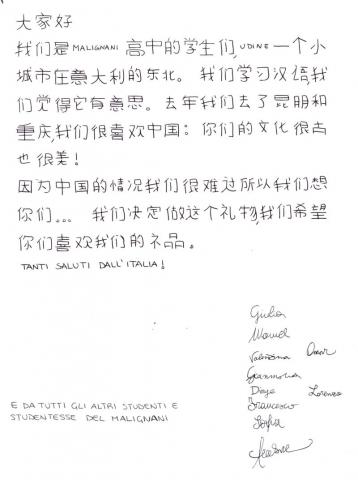 大家好
我们是 MALIGNANI 高中的学生们, UDINE 一个小
城市在意大利的东北。 我们学习汉语,我
们觉得它有意思。 去年我们去了昆明和
重庆,我们很喜欢中国: 你们的文化很古
也很美!
因为中国的情况我们很难过所以我们想
你们... 我们决定做这个礼物,我们希望
你们喜欢我们的礼品。
TANTI SALUTI DALL'ITALIA!
Giulia
Manuel
Valentina Omar
Gianmarco
Diego Lorenzo
Francesco
Sofia
E DA TUTTI GLI ALTRI STUDENTI E
STUDENTESSE DEL MALIGNANI